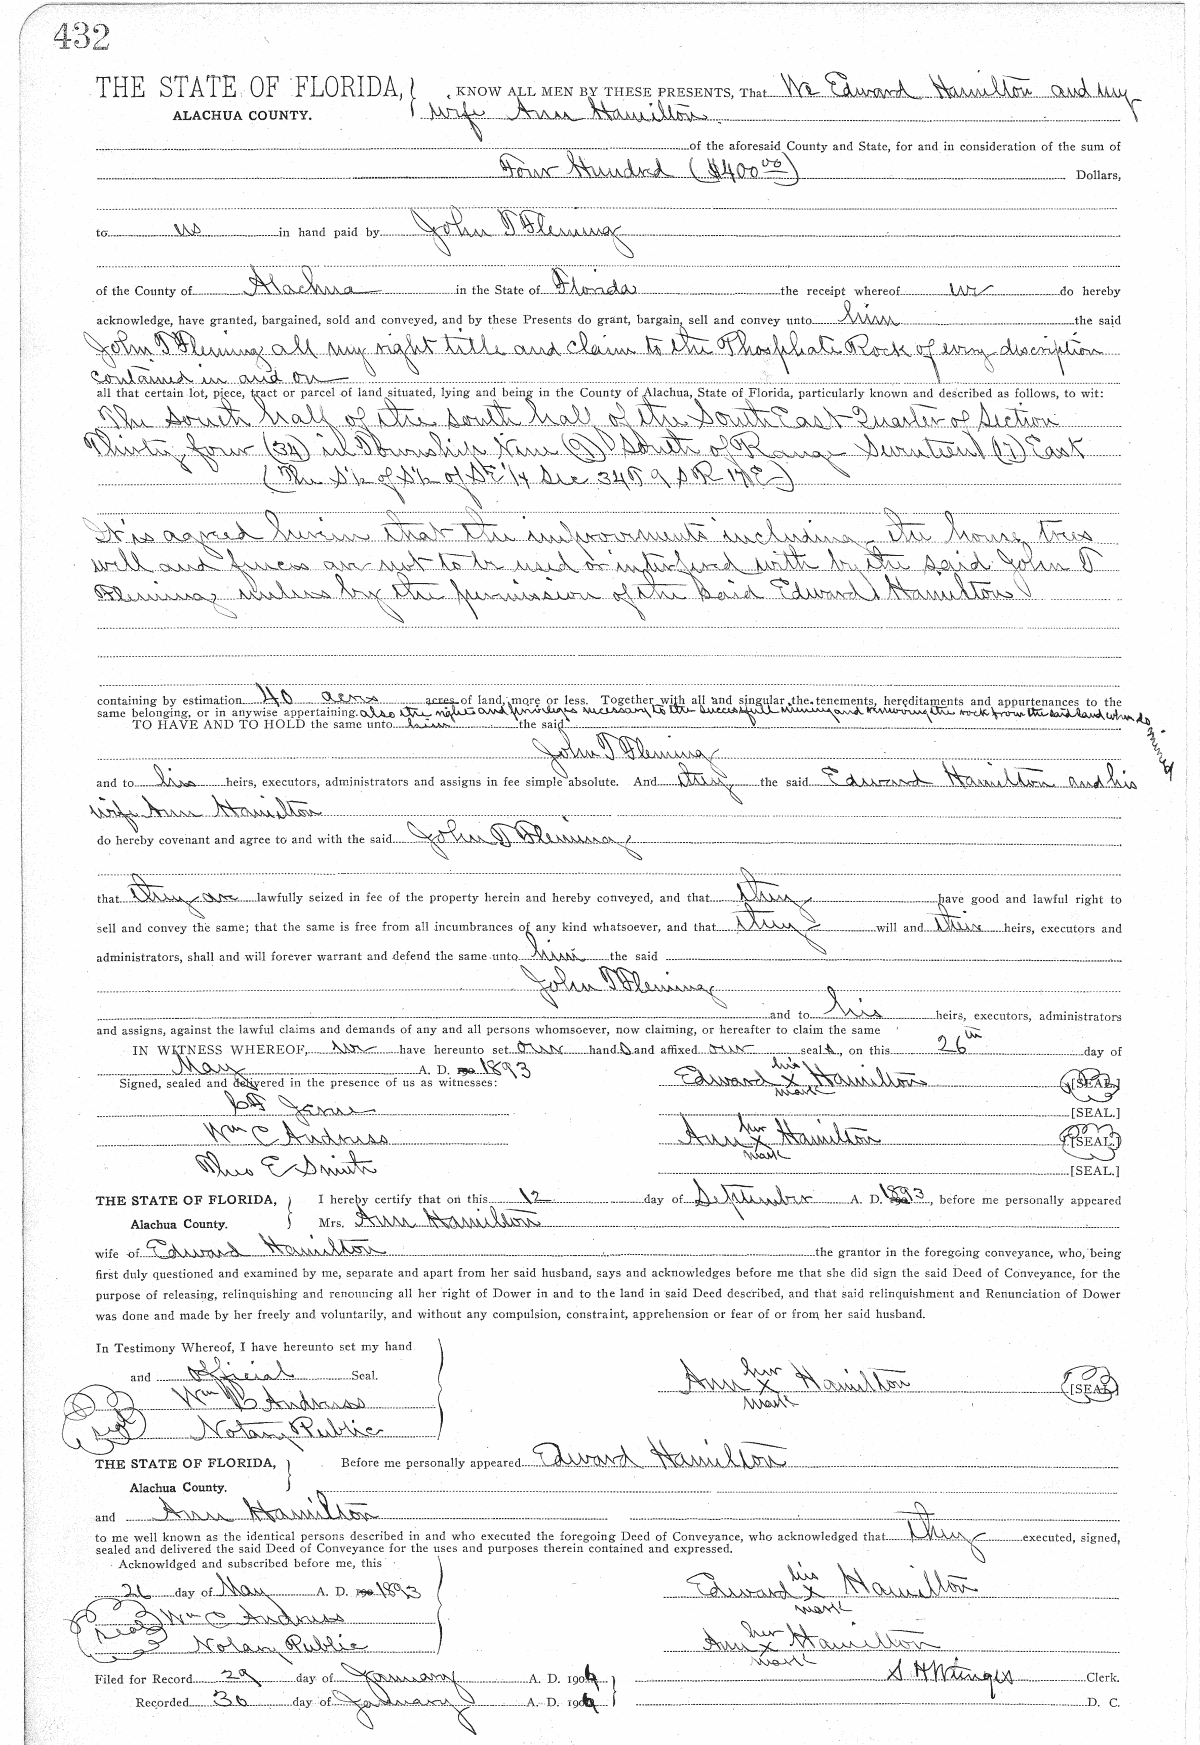 432
THE STATE OF FLORIDA, KNOW ALL MEN BY THESE PRESENTS, That We Edward Hamilton and my
ALACHUA COUNTY. wife Ann Hamilton
of the aforesaid County and State, for and in consideration of the sum of
Four Hundred ($400 00) Dollars,
to us in hand paid by John T Fleming
of the County of Alachua in the State of Florida the receipt whereof we do hereby
acknowledge, have granted, bargained, sold and conveyed, and by these Presents do grant, bargain, sell and convey unto him the said
John T Fleming all my right title and claim to the Phosphate Rock of every discription
contained in and on
all that certain lot, piece, tract or parcel of land situated, lying and being in the County of Alachua, State of Florida, particularly known and described as follows, to wit:
The South half of the south half of the South East Quarter of Section
Thirty four (34) in Township Nine (9) South of Range Seventeen (17) East
(The S½ of S½ of SE¼ Sec 34 T 9 S R 17 E)
It is agreed herein that the improvements including the house, trees
well and fences are not to be used or interfired with by the said John T
Fleming unless by the permission of the said Edward Hamilton
containing by estimation 40 acres acres of land, more or less. Together with all and singular the tenements, hereditaments and appurtenances to the
same belonging, or in anywise appertaining. also the rights and privileges necessary to the successfull mining and removing the rock from the said land when so mined
TO HAVE AND TO HOLD the same unto him the said
John T Fleming
and to his heirs, executors, administrators and assigns in fee simple absolute. And they the said Edward Hamilton and his
wife Ann Hamilton
do hereby covenant and agree to and with the said John T Fleming
that they are lawfully seized in fee of the property herein and hereby conveyed, and that they have good and lawful right to
sell and convey the same; that the same is free from all incumbrances of any kind whatsoever, and that they will and their heirs, executors and
administrators, shall and will forever warrant and defend the same unto him the said
John T Fleming
and to his heirs, executors, administrators
and assigns, against the lawful claims and demands of any and all persons whomsoever, now claiming, or hereafter to claim the same
IN WITNESS WHEREOF, we have hereunto set our hands and affixed our seals, on this 26th day of
May A. D. 1893
Signed, sealed and delivered in the presence of us as witnesses: Edward his X mark Hamilton [SEAL.]
[SEAL.]
Wm C Andruss Ann her X mark Hamilton [SEAL.]
Theo E Smith [SEAL.]
THE STATE OF FLORIDA, I hereby certify that on this 12 day of September A. D. 1893, before me personally appeared
Alachua County. Mrs. Ann Hamilton
wife of Edward Hamilton the grantor in the foregoing conveyance, who, being
first duly questioned and examined by me, separate and apart from her said husband, says and acknowledges before me that she did sign the said Deed of Conveyance, for the
purpose of releasing, relinquishing and renouncing all her right of Dower in and to the land in said Deed described, and that said relinquishment and Renunciation of Dower
was done and made by her freely and voluntarily, and without any compulsion, constraint, apprehension or fear of or from her said husband.
In Testimony Whereof, I have hereunto set my hand
and official Seal. Ann her X mark Hamilton [SEAL]
Wm C Andruss
seal Notary Public
THE STATE OF FLORIDA, Before me personally appeared Edward Hamilton
Alachua County.
and Ann Hamilton
to me well known as the identical persons described in and who executed the foregoing Deed of Conveyance, who acknowledged that they executed, signed,
sealed and delivered the said Deed of Conveyance for the uses and purposes therein contained and expressed.
Acknowldged and subscribed before me, this
26 day of May A. D. 1893 Edward his X mark Hamilton
seal Wm C Andruss
Notary Public Ann her X mark Hamilton
Filed for Record 29 day of January A. D. 1906 S H Wienges Clerk.
Recorded 30 day of January A. D. 1906 D. C.